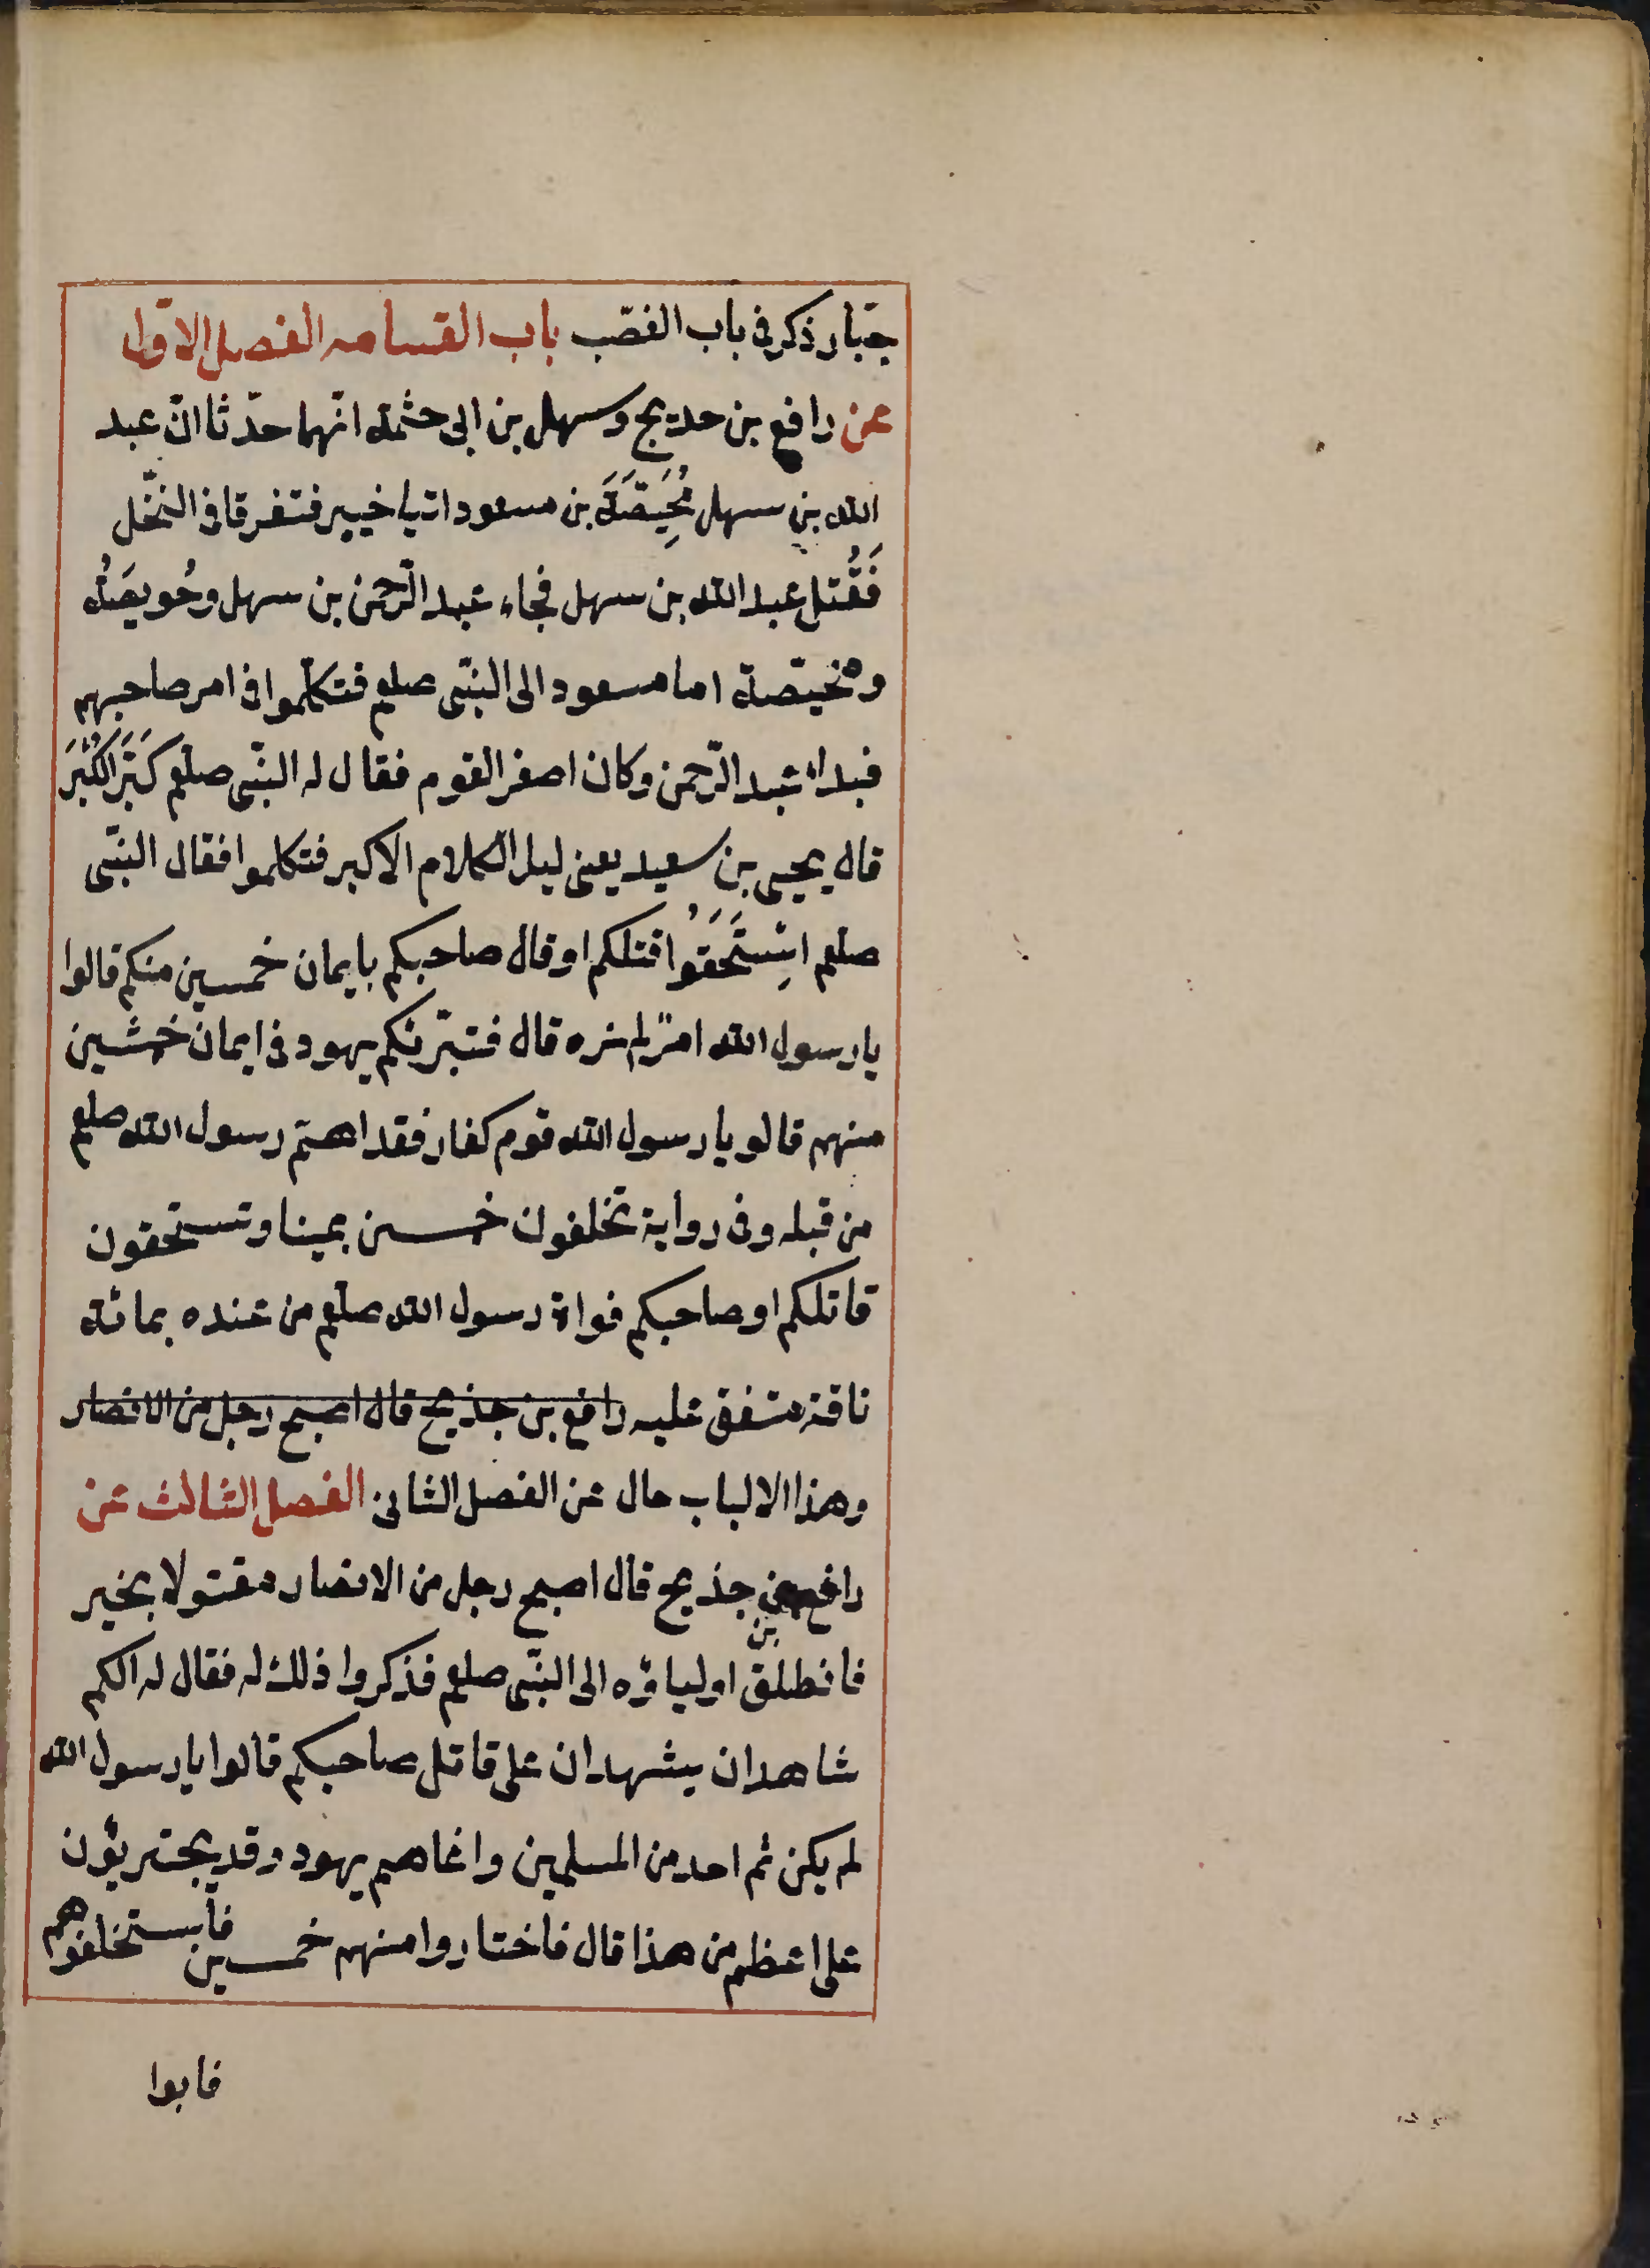 جبّار ذكر فى باب الغصّب باب القسامه الفصل الاوّل
عن رافع بن حديج وسهل بن ابى حثمة انّهما حدّثا انّ عبد
الله بن سهل مُحَيِّصَةَ بن مسعود اتيا خيبر فتفرقا فى النخّل
فَقُتل عبد الله بن سهل فجاء عبد الرّحمن بن سهل وحُويصَةُ
ومخيّصة اما مسعود الى النبّى صلعم فتكلّموا فى امر صاحبهم
فبداء عبد الرّحمن وكان اصغر القوم فقال له النبّى صلعم كَبَّر الكُبْرَ
قال يحيى بن سعيد يعنى ليلى الكلام الاكبر فتكلموا فقال النبّى
صلعم اسْتَحَقوُا قتلكم او قال صاحبكم بايمان خمسين منكم قالوا
يا رسول الله امرٌ لم نره قال فتبرّئكم يهود فى ايمان خمسين
منهم قالو يا رسول الله قوم كفار فقد اهم رسول الله صلعم
من قبله وفى رواية تخلفون خمسين يمينا وتستحقون
قاتلكم او صاحبكم فواة رسول الله صلعم من عنده بمائة
ناقة متفق عليه رافع بن جذيح قال اصبح رجل من الانصار
وهذا الالباب حال عن الفصل الثانى الفصل الثالث عن
رافع بن جذيح قال اصبح رجل من الانصار مقتولا بخير
فانطلق اولياؤه الى النبّى صلعم فذكروا ذلك له فقال له الكم
شاهدان يشهدان على قاتل صاحبكم قالوا يا رسول الله
لم يكن ثم احد من المسلمين وانما هم يهود وقد يجترئون
على اعظم من هذا قال فاختاروا منهم خمسين فاستخلفوهم
فابوا